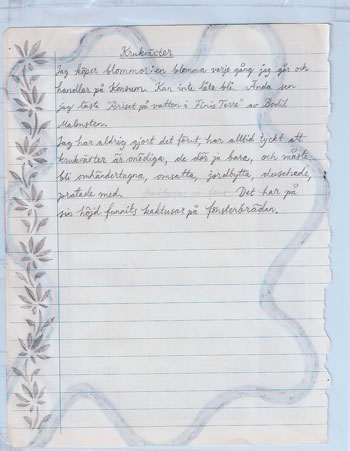 Krukväxter
Jag köper blommor: en blomma varje gång jag går och
handlar på Konsum. Kan inte låta bli. Ända sen
jag läste "Priset på vatten i Finis Terre" av Bodil
Malmsten.
Jag har aldrig gjort det förut, har alltid tyckt att
krukväxter är onödiga, de dör ju bara, och måste
bli omhändertagna, omsatta, jordbytta, duschade,
pratade med. Det har på
sin höjd funnits kaktusar på fönsterbrädan.